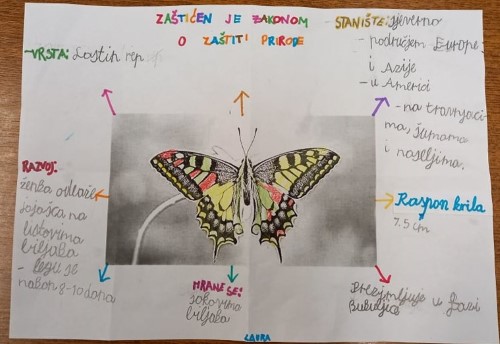 ZAŠTIĆEN JE ZAKONOM
O ZAŠTITI PRIRODE
-VRSTA: Lastin rep
-STANIŠTE: sjeverno
- područjem Europe,
i Azije
- u Americi
- na travnjaci
ma, šumama
i naseljima.
RAZVOJ:
ženka odlaže
jajašca na
listovima
biljaka
- legu se
nakon 8-10 dana
HRANE SE:
sokovima
biljaka
Raspon krila
7.5 cm
Prezimljuje u fazi
kukuljice
LAURA